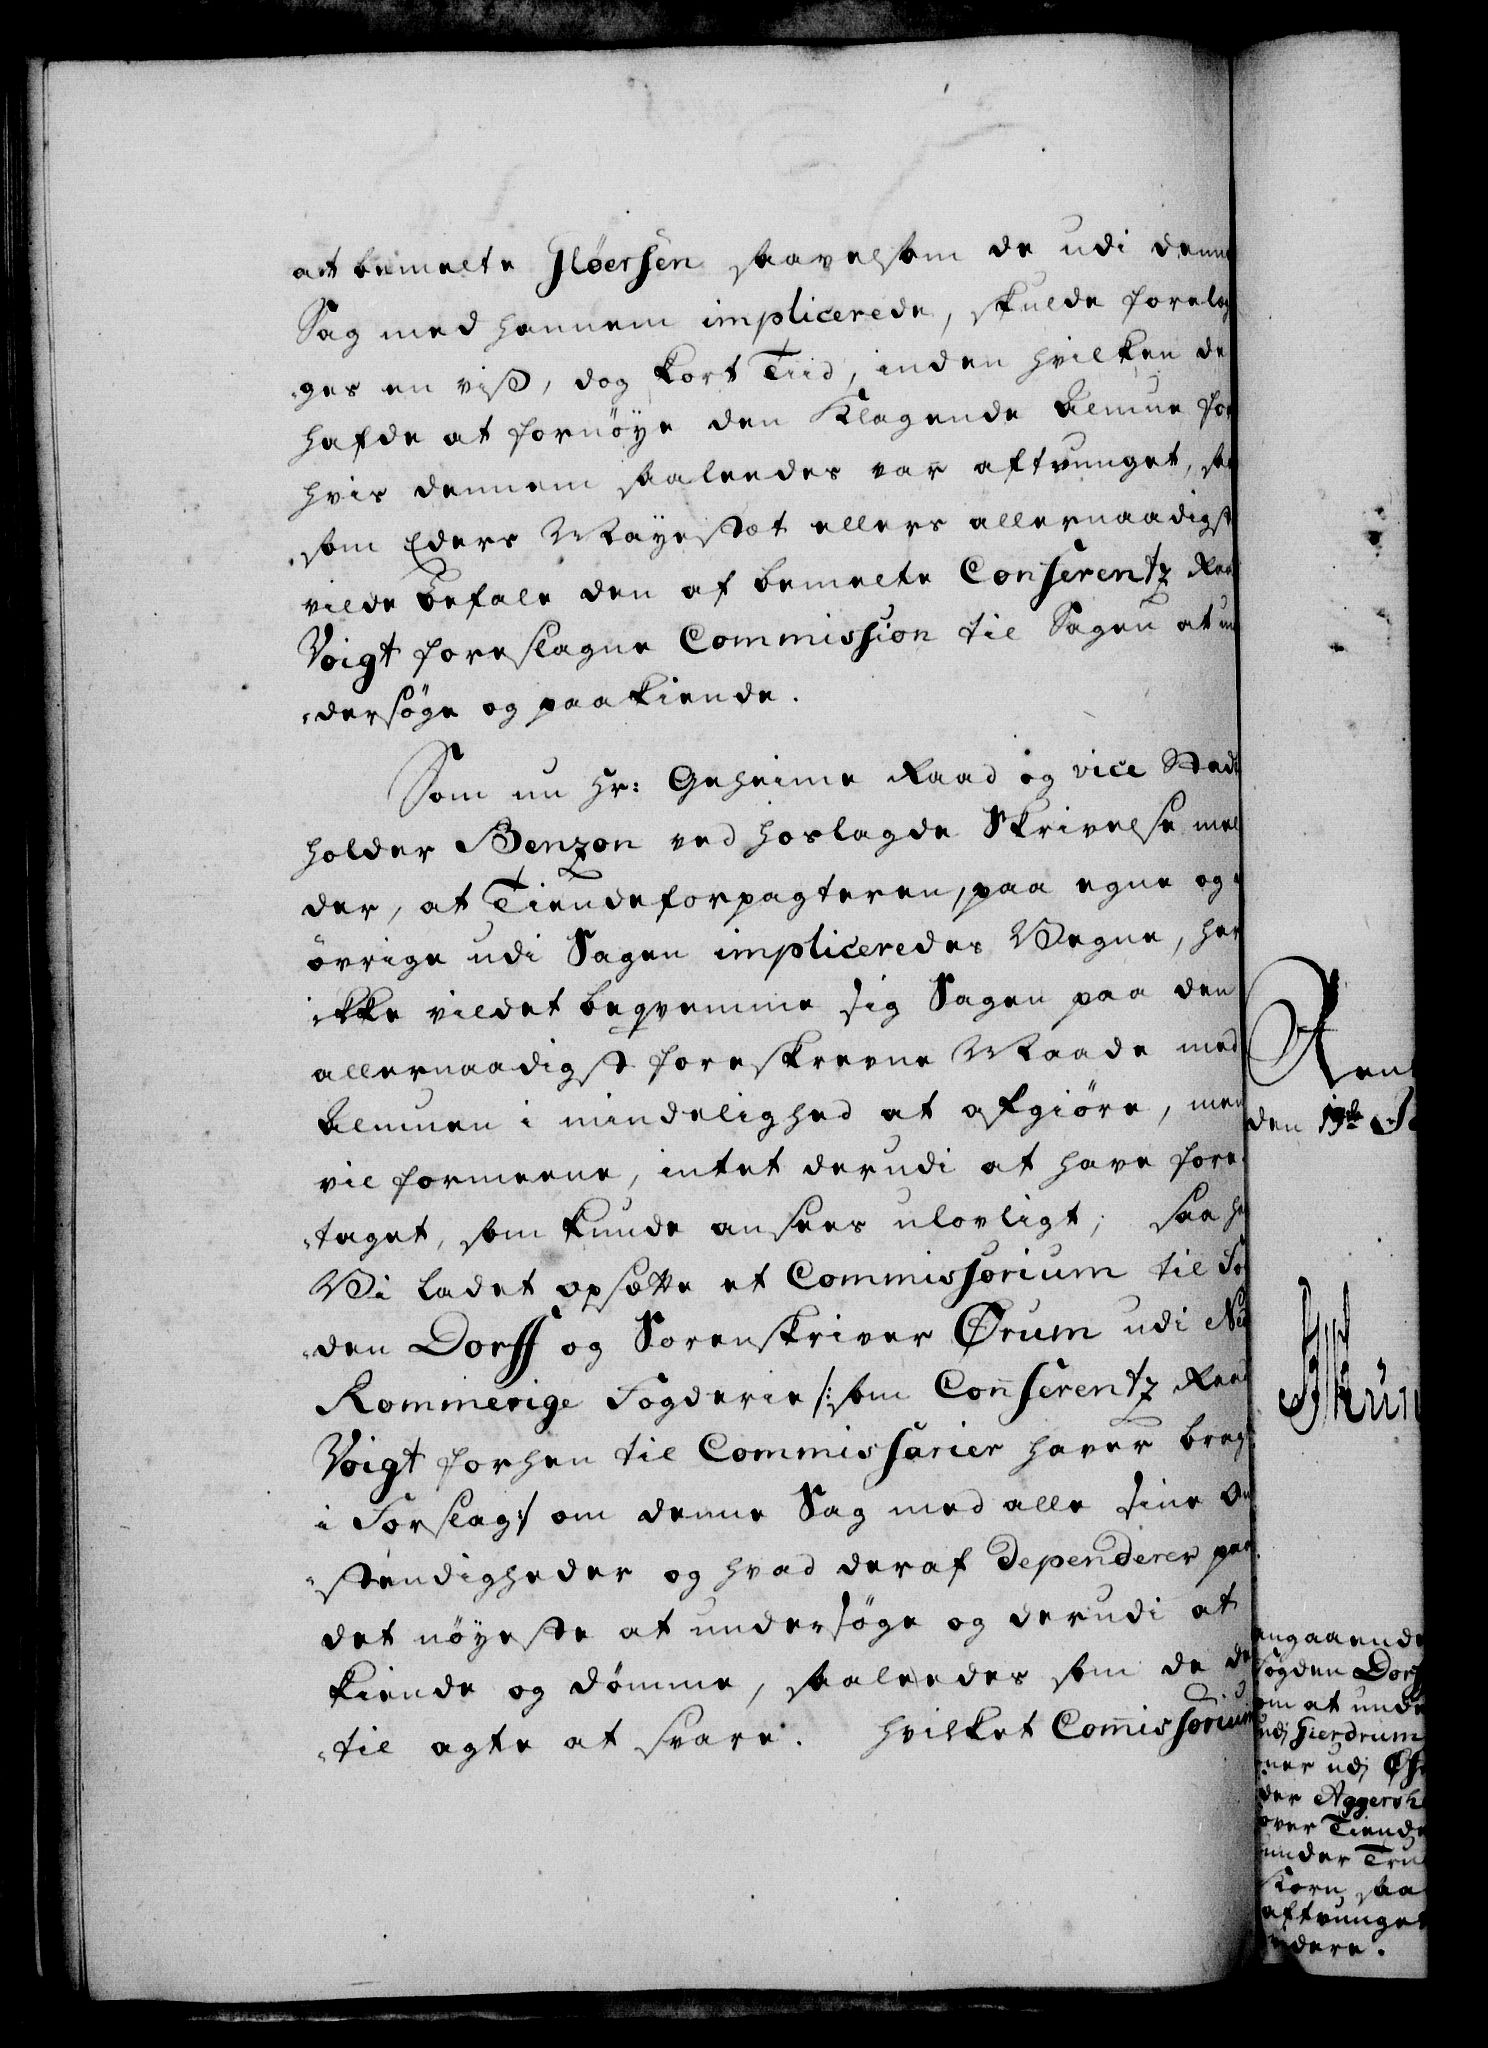 at bemelte Fløersen saavelsom de udi denne
Sag med hannem implicerede, skulde forelæg
-ges en viss, dog kort Tiid, inden hvilken de
hafde at fornöye den Klagende Almue for
hvis dennem saaleedes var aftvunget, saa
-som Eders Mayestæt ellers allernaadigst
vilde befale den af bemelte Conferentz Raad
Voigt foreslagne Commission til Sagen at un
-dersöge og paakiende.
Som nu Hr: Geheime Raad og vice Stadt
holder Benzon ved hoslagde Skrivelse mel
der, at Tiendeforpagteren, paa egne og
övrige udi Sagen impliceredes Vegne, har
ikke vildet beqvemme sig Sagen paa den
allernaadigst foreskrevne Maade med
Almuen i mindelighed at afgiöre, men
vil formeene, intet derudi at have fore-
-taget, som kunde ansees ulovligt; saa har
Vi ladet opsætte et Commissorium til Fog
-den Dorff og Sorenskriver Ørum udi Ned
Rommerige Fogderie /: som Conferentz Raad
Voigt forhen til Commissarier haver bragt
i Forslag :/ om denne Sag med alle sine Om
-stendigheder og hvad deraf dependerer paa
det nöyeste at undersöge og derudi at
kiende og dömme, saaleedes som de der
-til agte at svare. Hvilket Commissorium
den 19de
angaaende
Fogden Dorff
om at unde
udj Gierdrum
der Aggersh
over Tiende
under Tru
Korn, saa
aftvunget
videre.